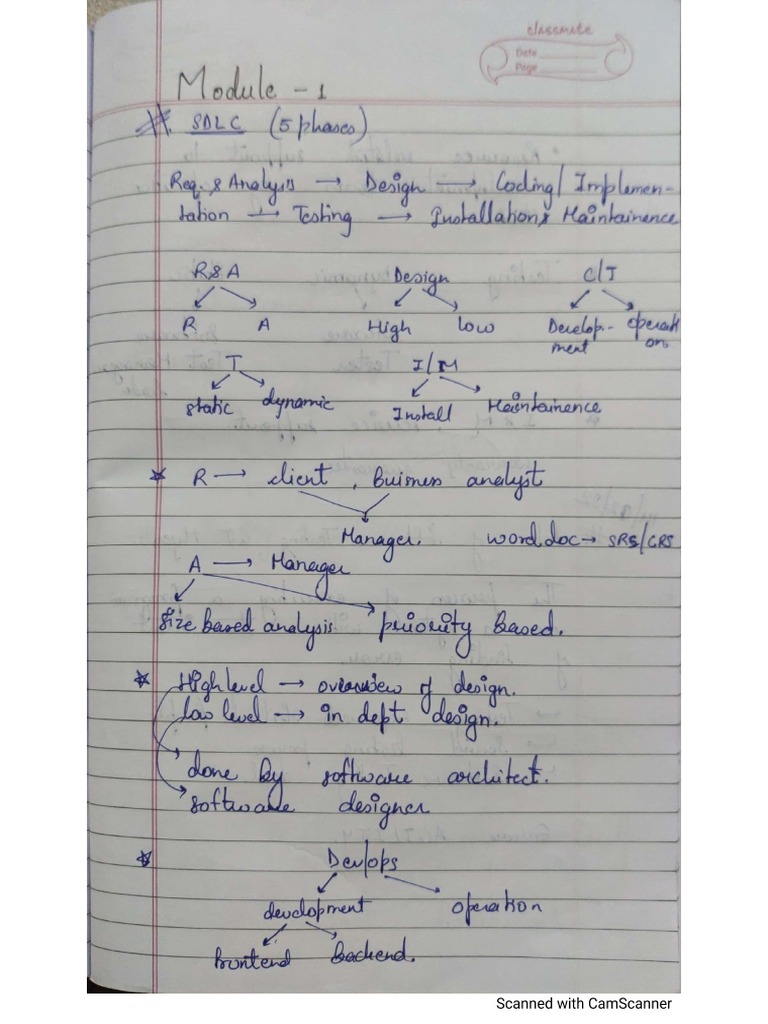 classmate
Date
Page
Module - 1
SDLC (5 phases)
Req. & Analysis → Design → Coding/ Implemen-
tation → Testing → Installation & Maintainence
R & A Design C/I
R A High Low Develop- operati
ment on
T I/M
static dynamic Install Maintainence
R → client , Buisness analyst
Manager. word doc → SRS/CRS
A → Manager
Size based analysis priority based.
High level → overview of design.
Low level → in dept design.
done by software architect.
software designer
Dev/ops
development operation
frontend backend.
Scanned with CamScanner